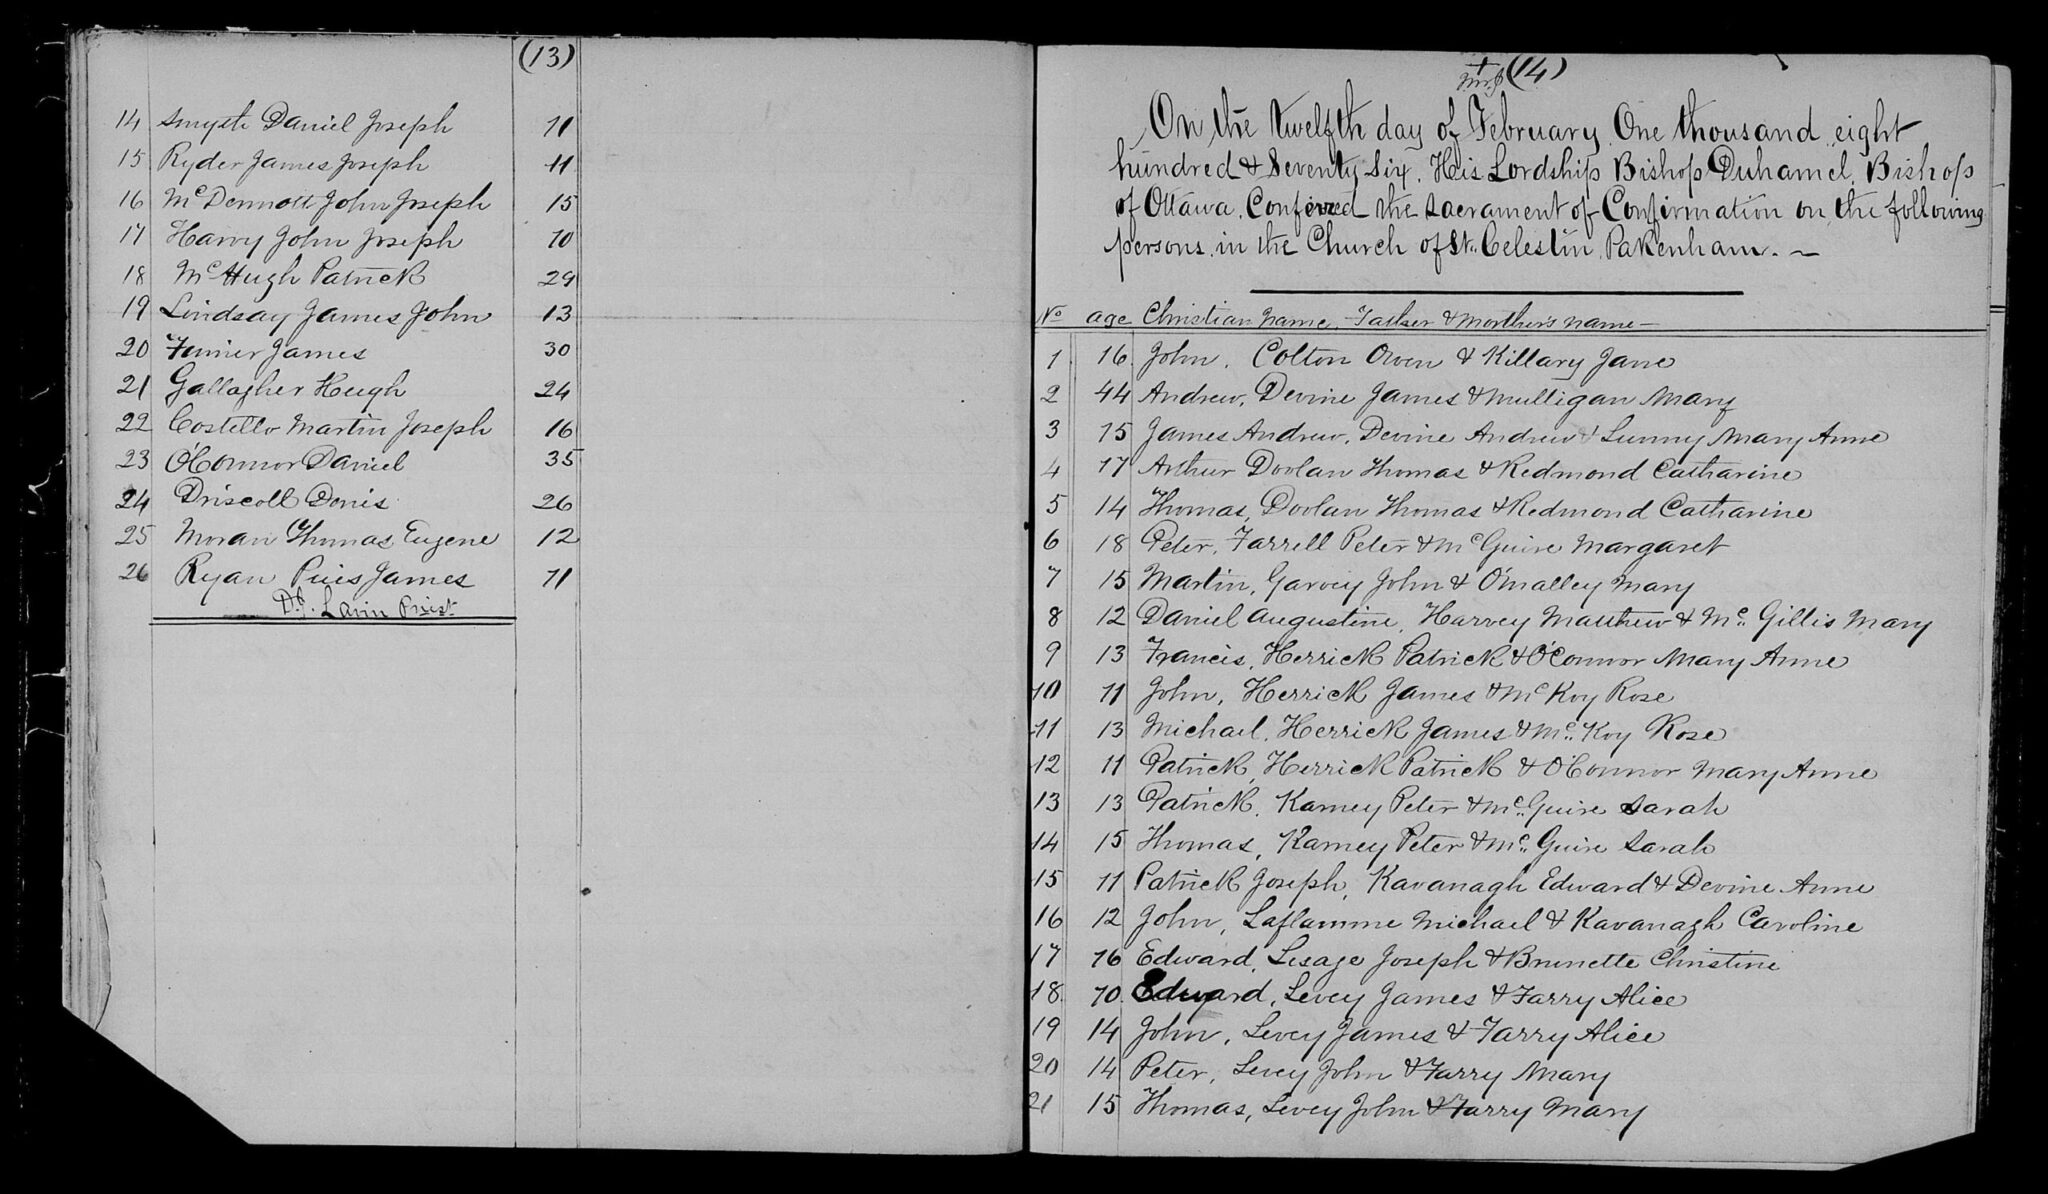 (13)
14 Smyth Daniel Joseph 11
15 Ryder James Joseph 11
16 McDermott John Joseph 15
17 Harvy John Joseph 10
18 McHugh Patrick 29
19 Lindsay James John 13
20 James 30
21 Gallagher Hugh 24
22 Costello Martin Joseph 16
23 O'Connor Daniel 35
24 Driscoll Denis 26
25 Moran Thomas Eugene 12
26 Ryan Pius James 11
D.J. Lavin Priest
(14)
On the twelfth day of February One thousand eight
hundred & Seventy Six. His Lordship Bishop Duhamel, Bishop
of Ottawa, Conferred the sacrament of Confirmation on the following
persons in the Church of St. Celestin Pakenham. —
No age Christian name, Father & Morther's name —
1 16 John, Colton Owen & Killary Jane
2 44 Andrew, Devine James & Mulligan Mary
3 15 James Andrew, Devine Andrew & Lunny Mary Anne
4 17 Arthur Doolan Thomas & Redmond Catharine
5 14 Thomas, Doolan Thomas & Redmond Catharine
6 18 Peter, Farrell Peter & McGuire Margaret
7 15 Martin, Garvey John & O'malley Mary
8 12 Daniel Augustine, Harvey Matthew & Mc Gillis Mary
9 13 Francis, Herrick Patrick & O'Connor Mary Anne
10 11 John, Herrick James & McKoy Rose
11 13 Michael, Herrick James & Mc Koy Rose
12 11 Patrick, Herrick Patrick & O'Connor Mary Anne
13 13 Patrick, Karney Peter & Mc Guire Sarah
14 15 Thomas, Karney Peter & Mc Guire Sarah
15 11 Patrick Joseph, Kavanagh Edward & Devine Anne
16 12 John, Laflamme Michael & Kavanagh Caroline
17 16 Edward, Lesage Joseph & Brunette Christine
18 10 Edward, Levey James & Farry Alice
19 14 John, Levey James & Farry Alice
20 14 Peter, Levey John & Farry Mary
21 15 Thomas, Levey John & Farry Mary